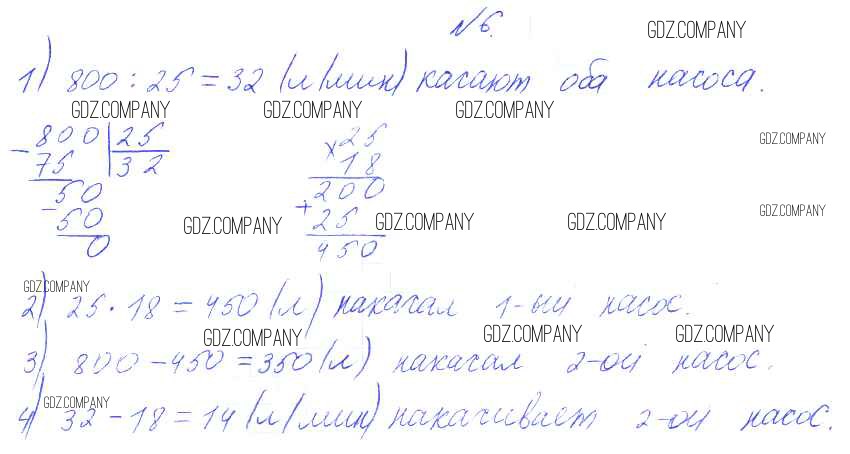 №6.
GDZ.COMPANY
1) 800 : 25 = 32 (л/мин) касают оба насоса.
GDZ.COMPANY GDZ.COMPANY GDZ.COMPANY
GDZ.COMPANY
- 800 | 25
75 32
- 50
50
0
× 25
18
+ 200
25
450
GDZ.COMPANY GDZ.COMPANY GDZ.COMPANY GDZ.COMPANY
GDZ.COMPANY
2) 25 · 18 = 450 (л) накачал 1-ый насос.
GDZ.COMPANY GDZ.COMPANY GDZ.COMPANY
3) 800 - 450 = 350 (л) накачал 2-ой насос.
GDZ.COMPANY
4) 32 - 18 = 14 (л/мин) накачивает 2-ой насос.